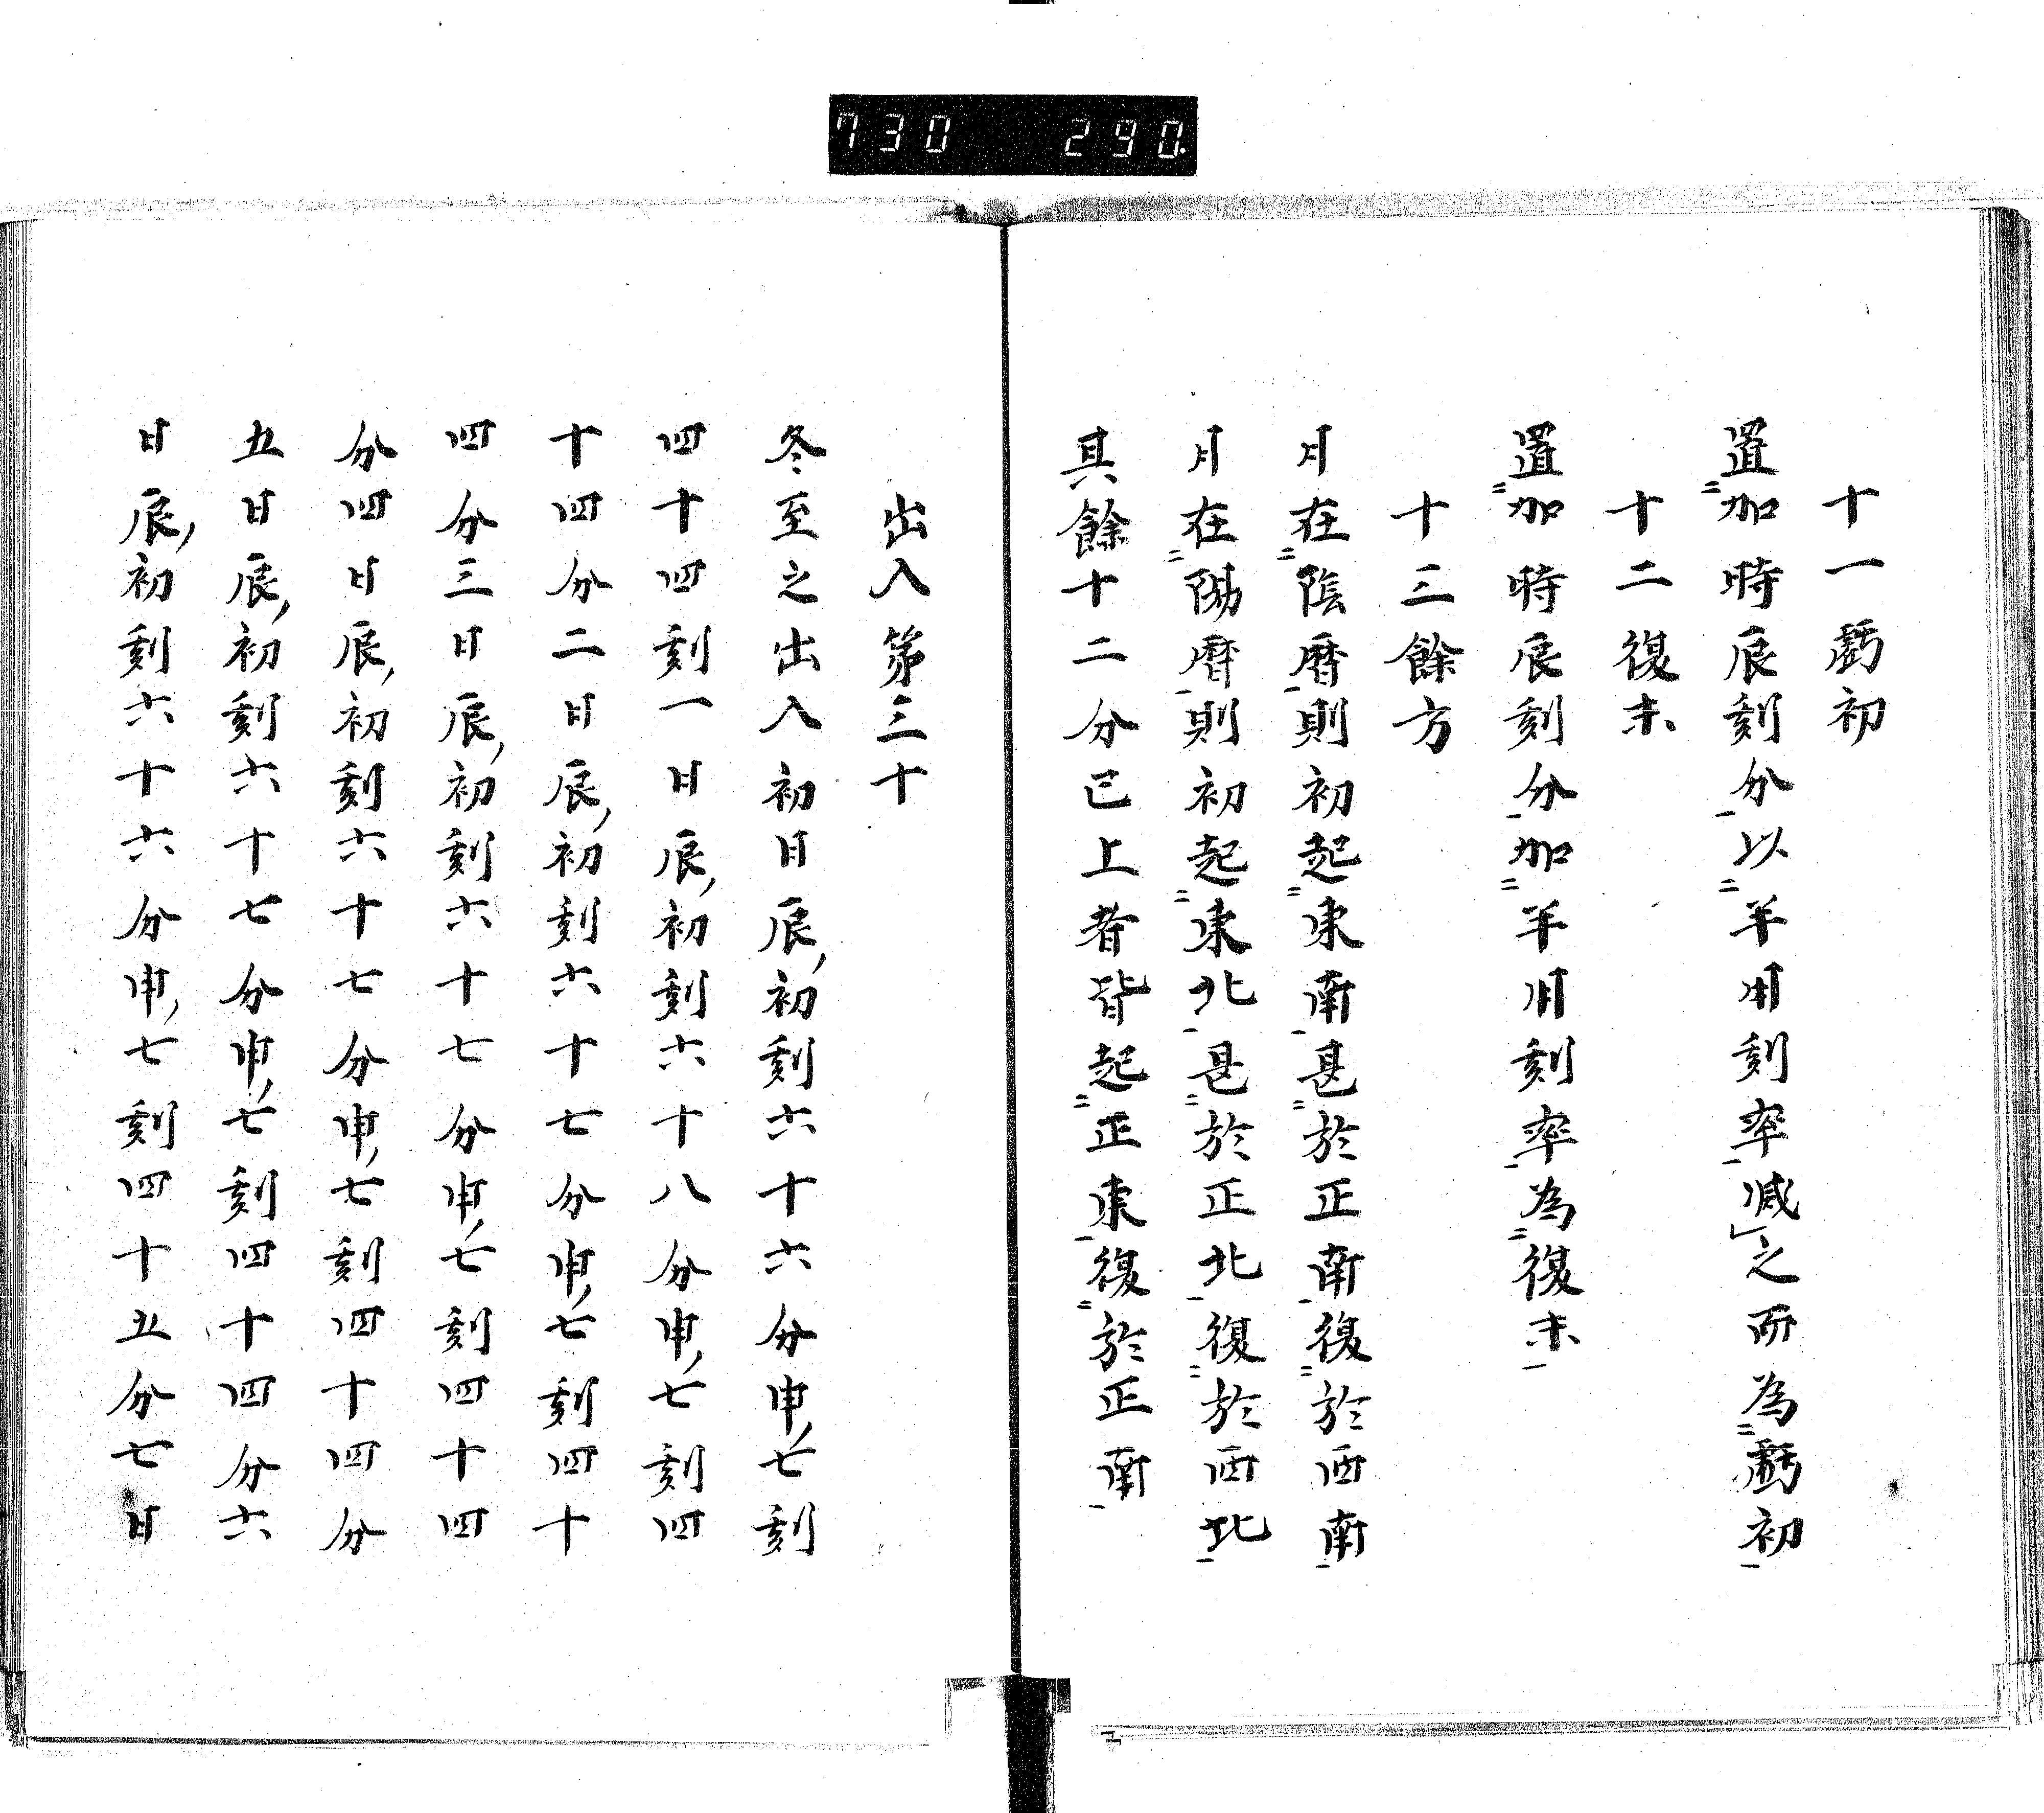 730 290.
十一虧初
置加時辰刻分以半用刻率减之而為虧初
十二復末
置加時辰刻分加半用刻率為復末
十三餘方
月在陰暦則初起東南甚於正南復於西南
月在陽暦則初起東北甚於正北復於西北
其餘十二分已上者皆起正東復於正南
出入第三十
冬至之出入初日辰初刻六十六分申七刻
四十四刻一日辰初刻六十八分申七刻四
十四分二日辰初刻六十七分申七刻四十
四分三日辰初刻六十七分申七刻四十四
分四日辰初刻六十七分申七刻四十四分
五日辰初刻六十七分申七刻四十四分六
日辰初刻六十六分申七刻四十五分七日